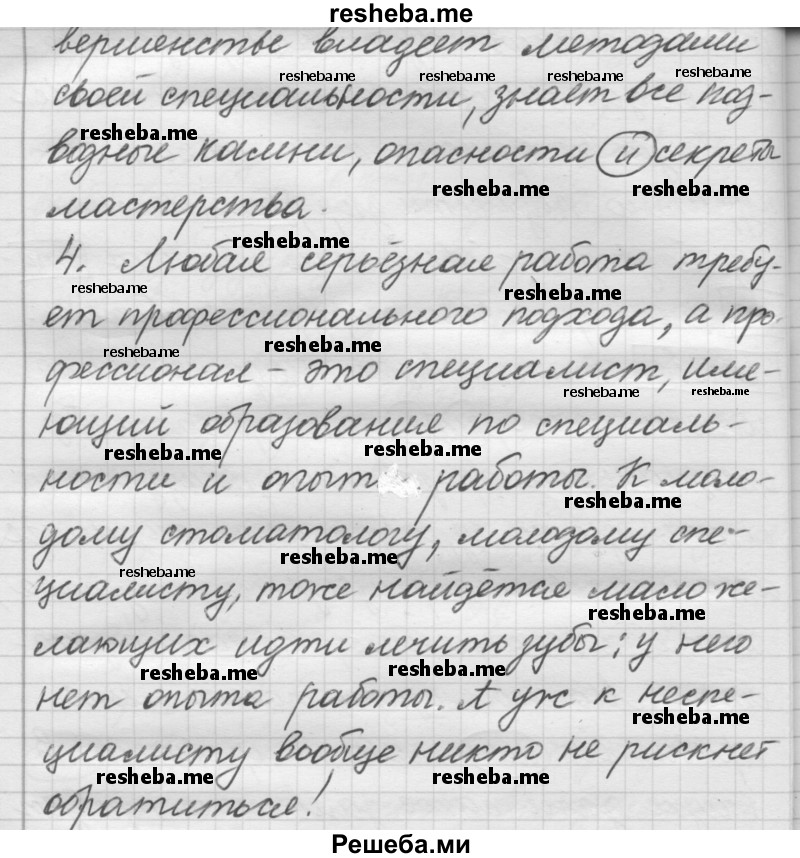 resheba.me
вершенстве владеет методами
resheba.me resheba.me resheba.me resheba.me
своей специальности, знает все под-
resheba.me
водные камни, опасности и секреты
resheba.me resheba.me
мастерства.
resheba.me
4. Любая серьёзная работа требу-
resheba.me resheba.me
ет профессионального подхода, а про-
resheba.me resheba.me
фессионал – это специалист, име-
resheba.me resheba.me
ющий образование по специаль-
resheba.me resheba.me
ности и опыт работы. К моло-
resheba.me
дому стоматологу, молодому спе-
resheba.me
resheba.me
циалисту, тоже найдётся мало же-
resheba.me
лающих идти лечить зубы; у него
resheba.me resheba.me
нет опыта работы. А уж к неспе-
resheba.me
циалисту вообще никто не рискнет
resheba.me resheba.me
обратиться!
Решеба.ми